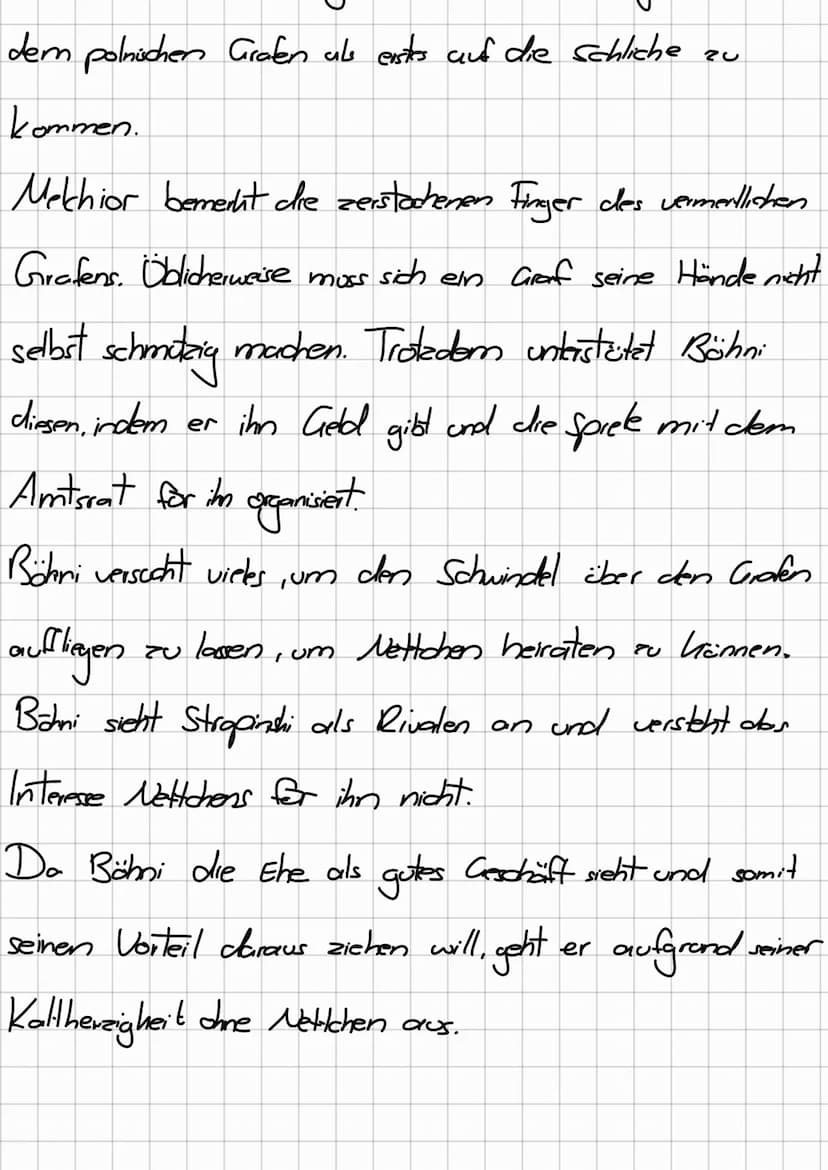 dem polnischen Grafen als erstes auf die schliche zu
kommen.
Melchior bemerkt die zerstochenen Finger des vermeitlichen
Grafens. Üblicherweise muss sich ein Graf seine Hände nicht
selbst schmutzig machen. Trotzdem unterstützt Böhni
diesen, indem er ihn Geld gibt und die Spiele mit dem
Amtsrat für ihn organisiert.
Böhni versucht vieles, um den Schwindel über den Grafen
auffliegen zu lassen, um Nettchen heiraten zu können.
Böhni sieht Strapinski als Rivalen an und versteht das
Interesse Nettchens für ihn nicht.
Da Böhni die Ehe als gutes Geschäft sieht und somit
seinen Vorteil daraus ziehen will, geht er aufgrund seiner
Kaltherzigkeit ohne Nettchen aus.